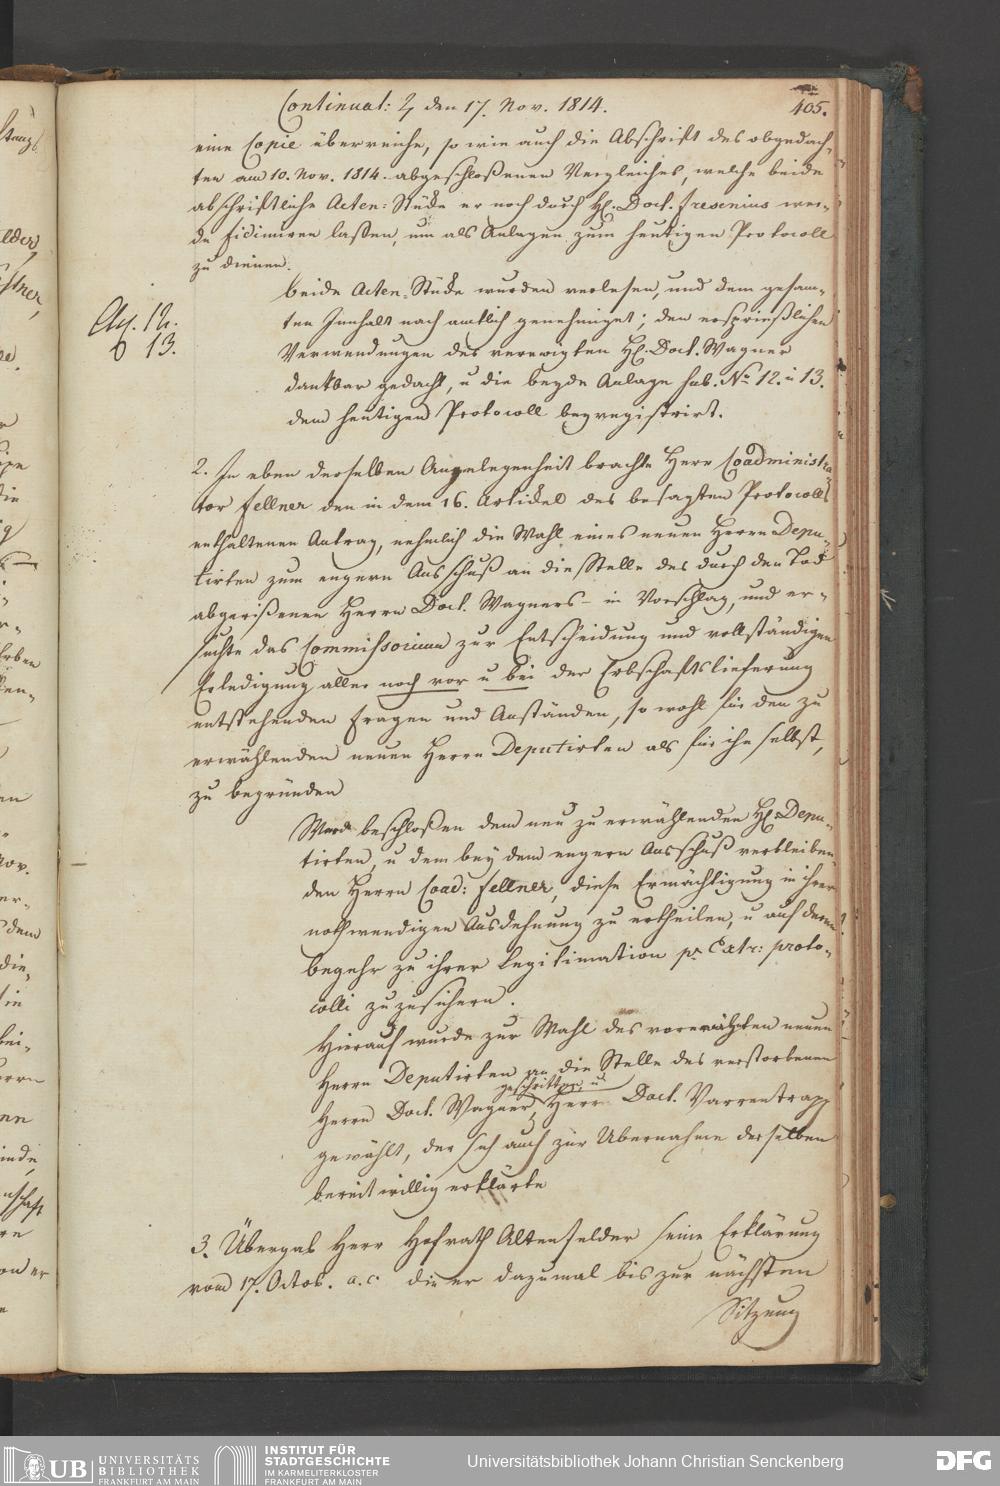 Continuat: ♃ den 17. Nov. 1814.
405.
eine Copie überreiche, so wie auch die Abschrift des obgedach-
ten am 10. Nov. 1814. abgeschloßenen Vergleiches, welche beide
abschriftliche Acten-Stücke er noch durch H. Doct. Fresenius wer-
de fidimiren laßen, um als Anlagen zum heutigen Protocoll
zu dienen.
Anl. 12.
13.
beide Acten-Stücke wurden verlesen, und dem gesam-
ten Innhalt nach amtlich genehmiget; den ersprießlichen
Verwendungen des verewigten H. Doct. Wagner
dankbar gedacht, u die beyde Anlage sub. No 12. u 13.
dem heutigen Protocoll beyregistrirt.
2. In eben derselben Angelegenheit brachte Herr Coadministra-
tor Fellner den in dem 16. Artickel des besagten Protocolls
enthaltenen Antrag, nehmlich die Wahl eines neuen Herrn Depu-
tirten zum engern Ausschuß an die Stelle des durch den Tod
abgerißenen Herrn Doct. Wagners - in Vorschlag, und er-
suchte das Commissorium zur Entscheidung und vollständigen
Erledigung aller noch vor u bei der Erbschaftslieferung
entstehenden Fragen und Anständen, so wohl für den zu
erwählenden neuen Herrn Deputirten als für ihn selbst,
zu begründen
Ward beschloßen dem neu zu erwählenden H. Depu-
tirten, u dem bey dem engern Ausschuß verbleiben-
den Herrn Coad: Fellner, diese Ermächtigung in ihrer
nothwendigen Ausdehnung zu ertheilen, u auf deren
begehr zu ihrer Legitimation pr. Extr: proto-
colli zuzusichern.
Hierauf wurde zur Wahl des vorerwähnten neuen
Herrn Deputirten an die Stelle des verstorbenen
geschritten, u
Herrn Doct. Wagner, Herr Doct. Varrentrapp
gewählt, der sich auch zur Übernahme derselben
bereit willig erklärte
3. Übergab Herr Hofrath Altenfelder seine Erklärung
vom 17. Octob. a. c. die er dazumal bis zur nächsten
Sitzung
UB UNIVERSITÄTS
BIBLIOTHEK
FRANKFURT AM MAIN
INSTITUT FÜR
STADTGESCHICHTE
IM KARMELITERKLOSTER
FRANKFURT AM MAIN
Universitätsbibliothek Johann Christian Senckenberg
DFG